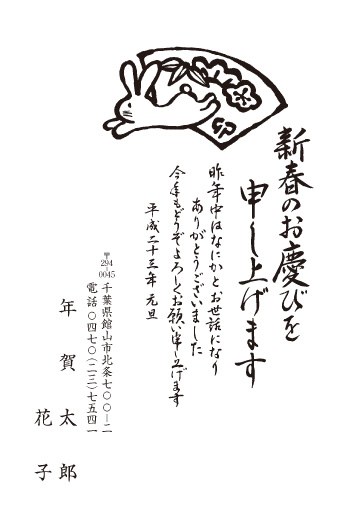 卯
新春のお慶びを
申し上げます
昨年中はなにかとお世話になり
ありがとうございました
今年もどうぞよろしくお願い申し上げます
平成二十三年 元旦
〒294-0045
千葉県館山市北条七〇〇ー二
電話〇四七〇(二三)七五四一
年賀 太郎
花子